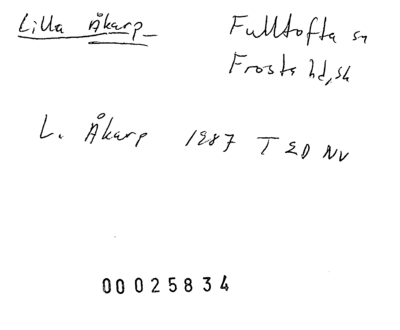 Lilla Åkarp
Fulltofta sn
Frosta hd, Sk
L. Åkarp 1987 T 2D NV
00025834